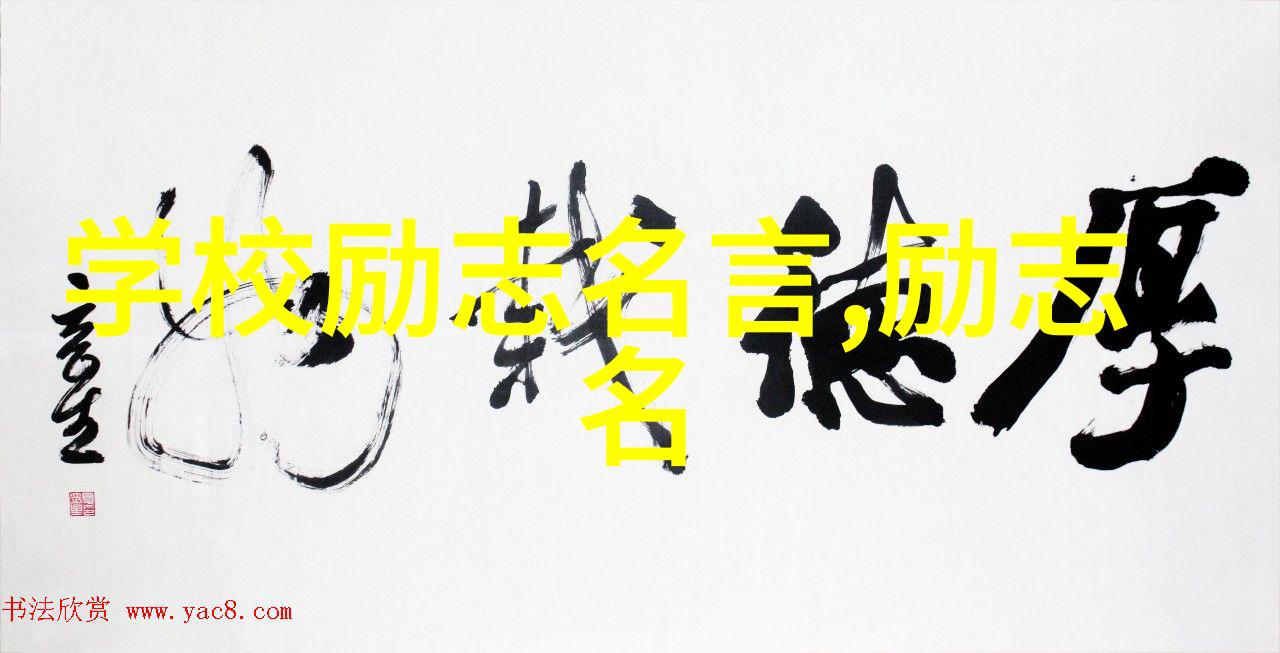 学校励志名言,励志
名
厚德载物
书法欣赏 www.yac8.com